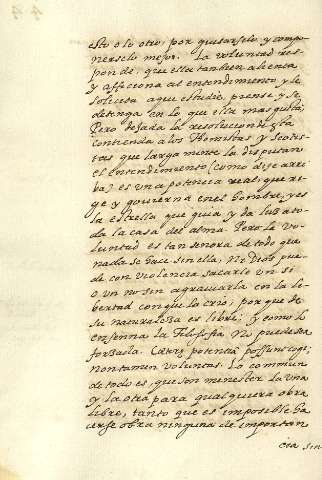 esto o lo otro, por quitarselo y compo-
nerselo mejor. La voluntad res-
ponde, que ella tambien alienta
y affeciona al entendimiento y le
solicita a que estudie, piense y se
detenga en lo que ella mas gusta.
Pero dejada la resolucion de esta
contienda a los Thomistas, y Scotis-
tas que larga mente lo disputan
el entendimiento (como dije arri-
ba) es una potencia real, que ri-
ge y gouierna en el hombre, y es
la estrella que guia y da luz a to-
da la casa del alma. Pero la vo-
luntad es tan señora de todo que
nada se hace sin ella, Ni Dios pue-
de con violencia sacarle un si
o un no sin agrauiarla con la li-
bertad con que la crio; por que de
su naturaleza es libre; y como lo
enseña la Filosofia No puede ser
forzada. Cæteræ potentiæ possunt cogi;
non tamen voluntas. Lo commun
de todo es, que son menester la una
y la otra para qual quiera obra
libre, tanto que es imposible ha-
cerse obra ninguna de importan
cia sin